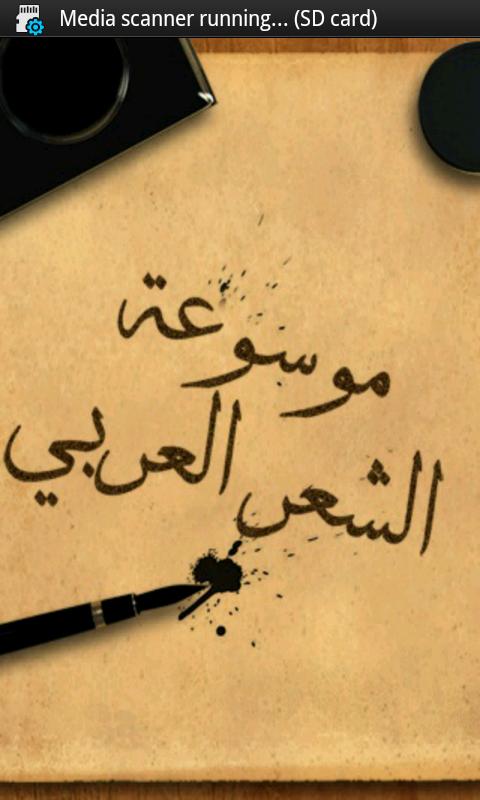 Media scanner running... (SD card)
موسوعة
الشعر العربي